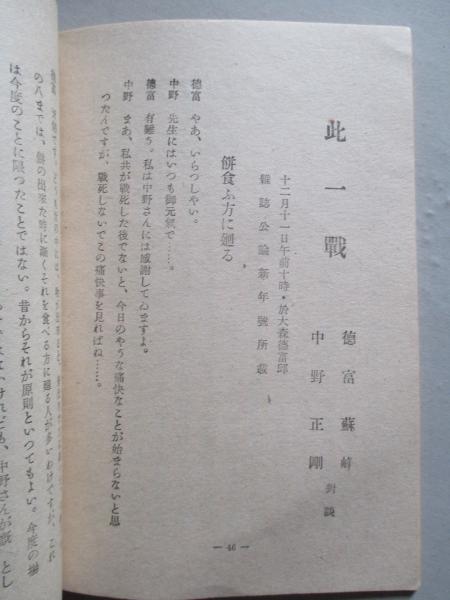 此一戰
德富蘇峰
中野正剛 對談
十二月十一日午前十時・於大森德富邸
雜誌公論新年號所載
餅食ふ方に廻る
德富 やあ、いらつしやい。
中野 先生にはいつも御元氣で……。
德富 有難う。私は中野さんには感謝してゐますよ。
中野 まあ、私共が戰死した後でないと、今日のやうな痛快なことが始まらないと思
つたんですが、戰死しないでこの痛快事を見ればね……。
— 46 —
の八までは、餅の出來た時に漸くそれを食べる方に廻る人が多いわけですが、これ
は今度のことに限つたことではない。昔からそれが原則といつてもよい。今度の
けれども、中野さんが